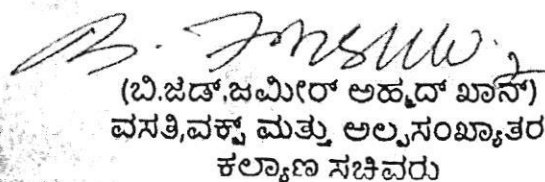 (ಬಿ.ಜಡ್.ಜಮೀರ್ ಅಹ್ಮದ್ ಖಾನ್)
ವಸತಿ,ವಕ್ಫ್ ಮತ್ತು ಅಲ್ಪಸಂಖ್ಯಾತರ
ಕಲ್ಯಾಣ ಸಚಿವರು